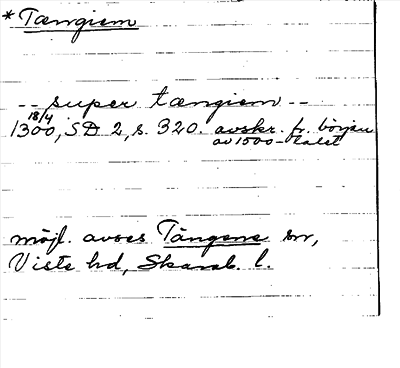 *Tængiem
-- super tængiem --
18/4
1300, SD 2, s. 320. avskr. fr. början
av 1500-talet
möjl. avses Tängene sn,
Viste hd, Skarab. l.